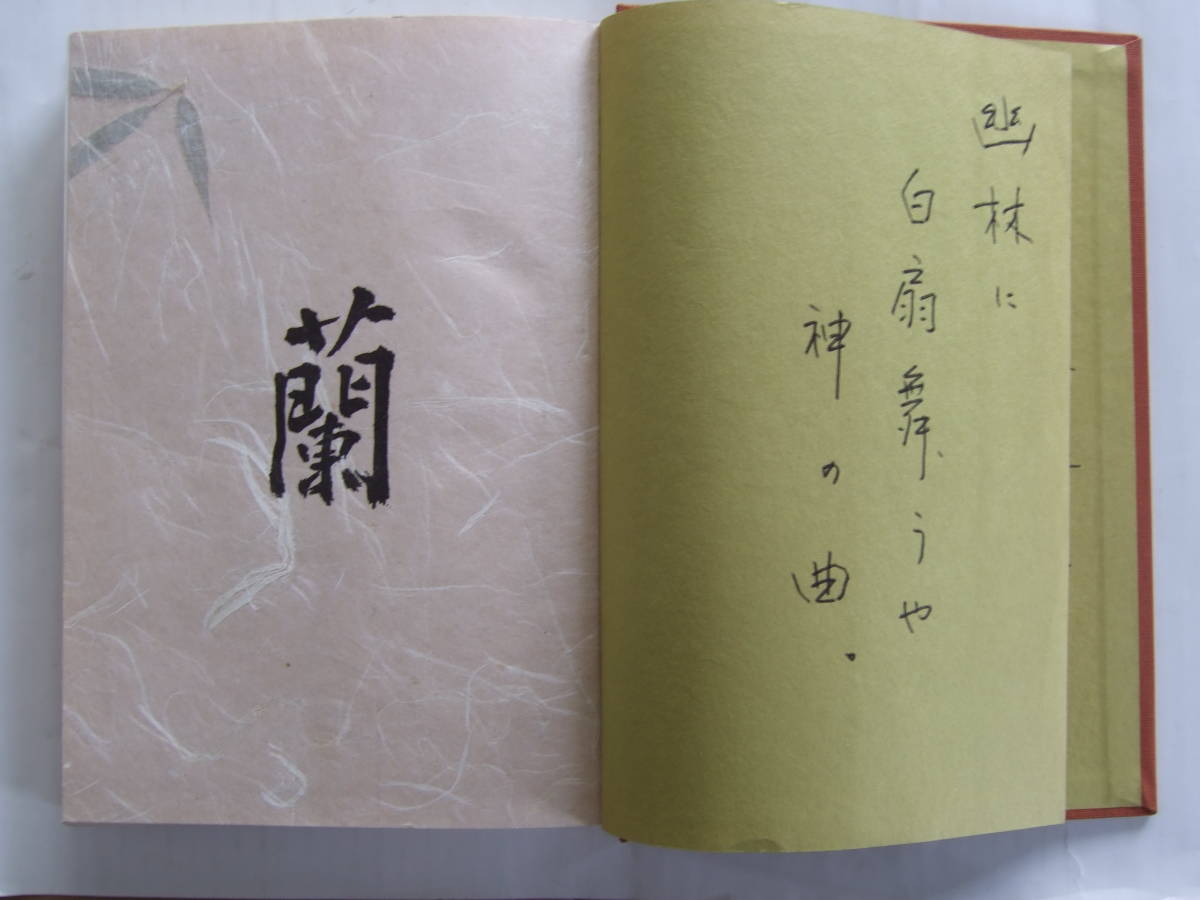 幽林に
白扇舞うや
神の曲。
蘭